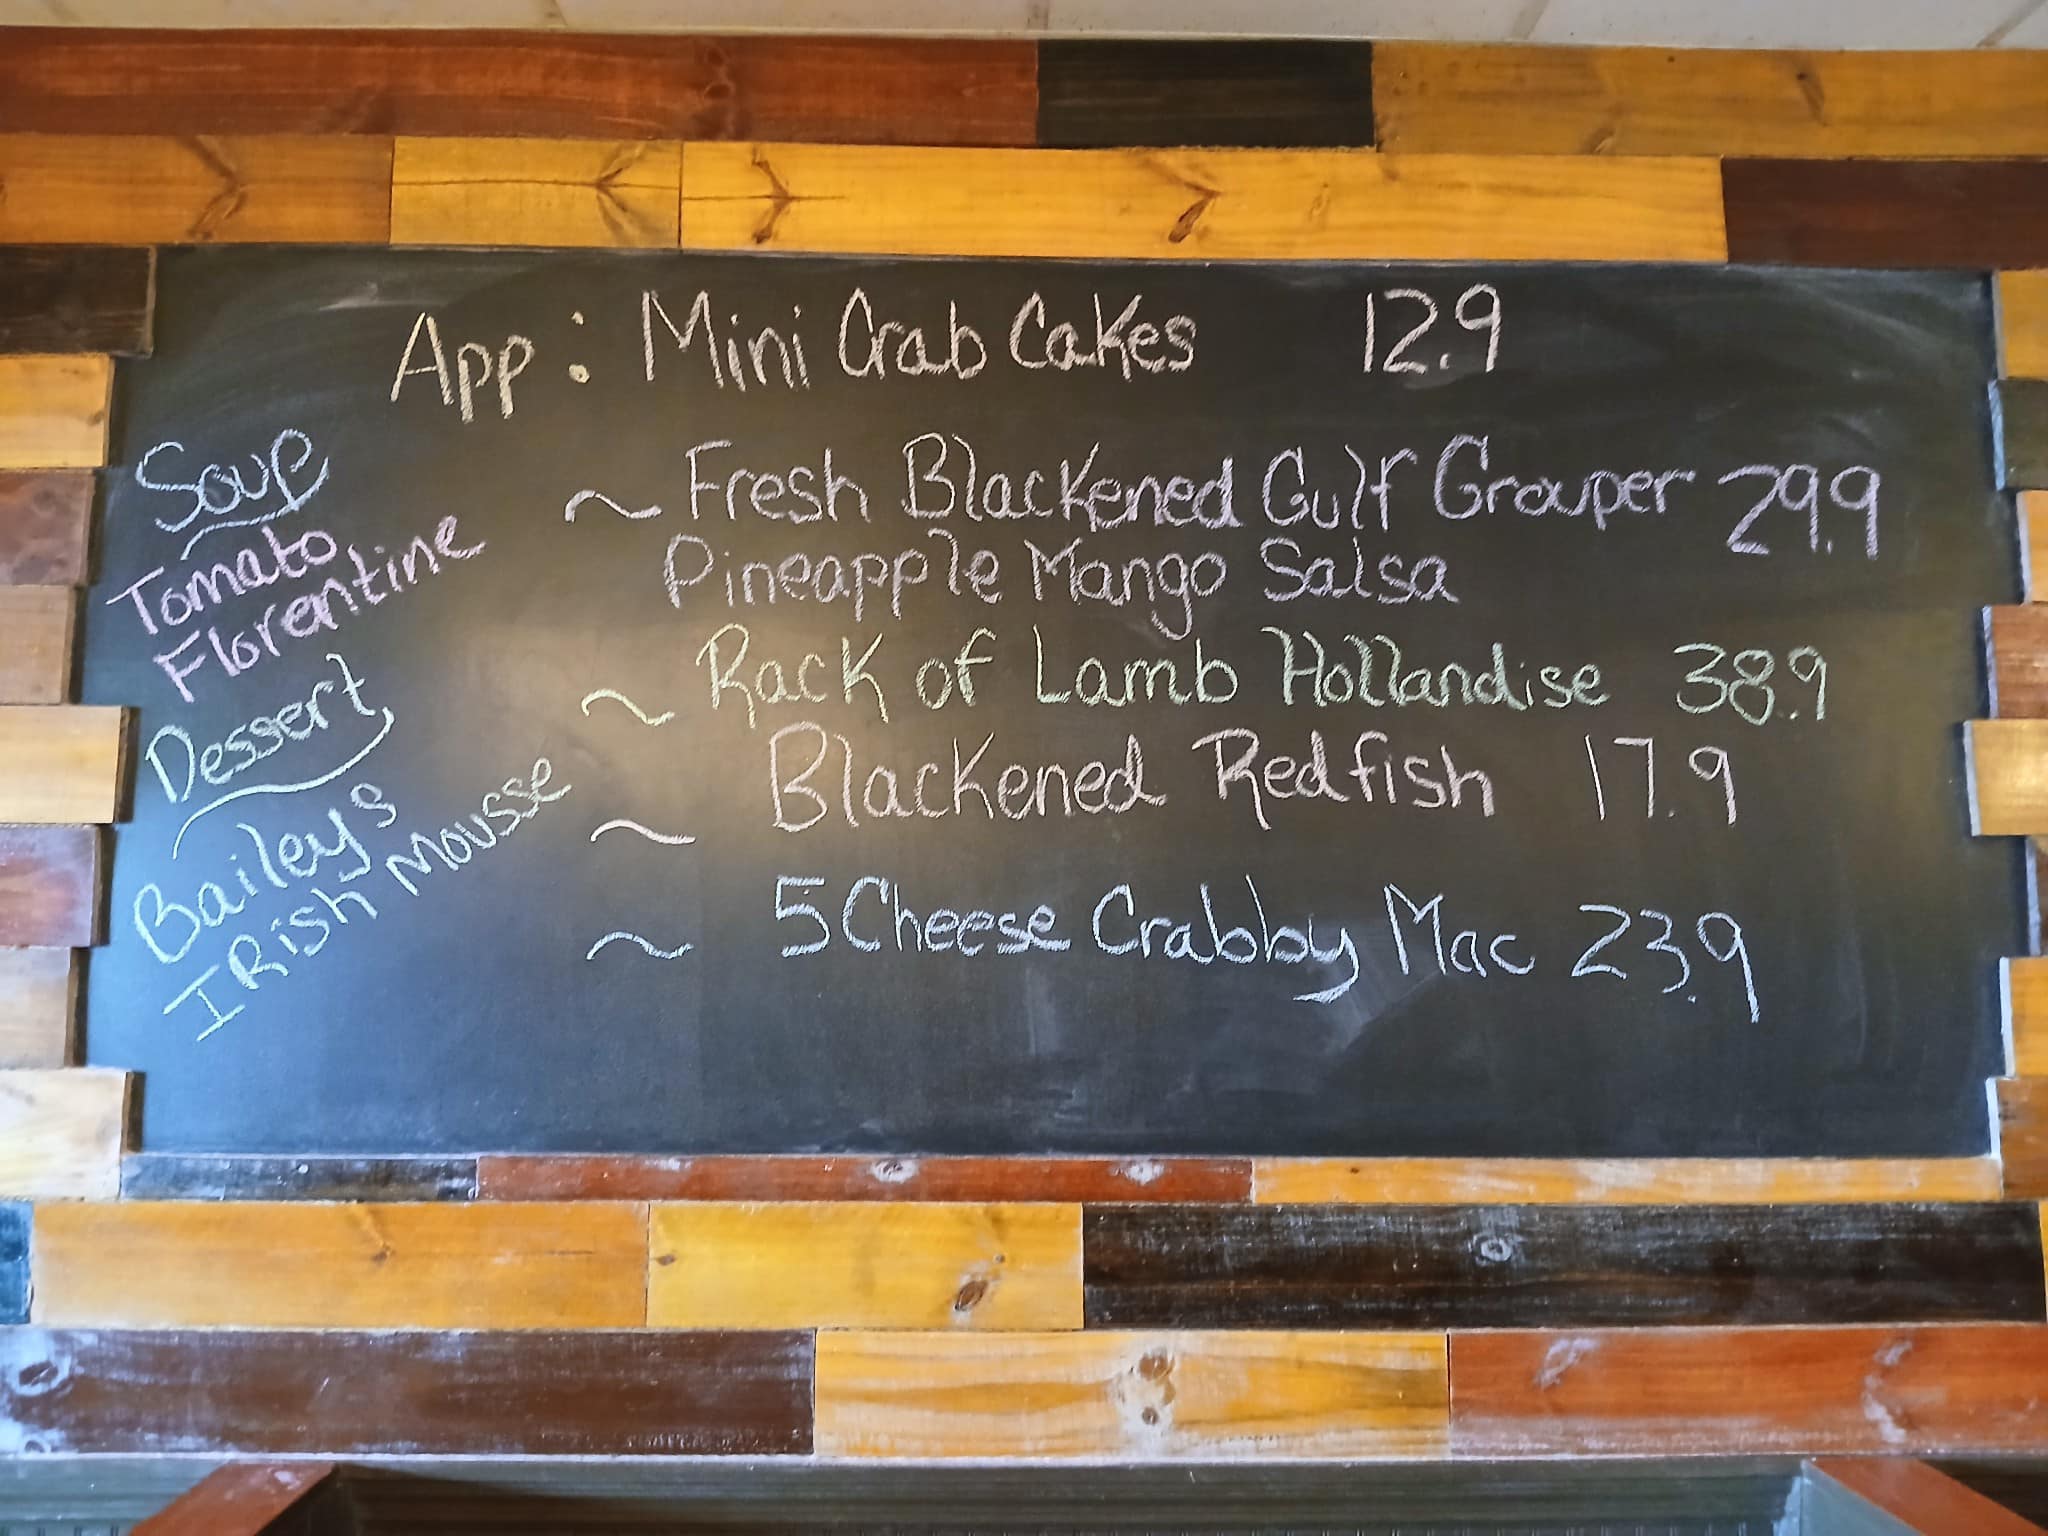 App: Mini Crab Cakes 12.9
Soup
Tomato
Florentine
Dessert
Baileys
IRish Mousse
~ Fresh Blackened Gulf Grouper 29.9
Pineapple Mango Salsa
~ Rack of Lamb Hollandise 38.9
~ Blackened Redfish 17.9
~ 5 Cheese Crabby Mac 23.9